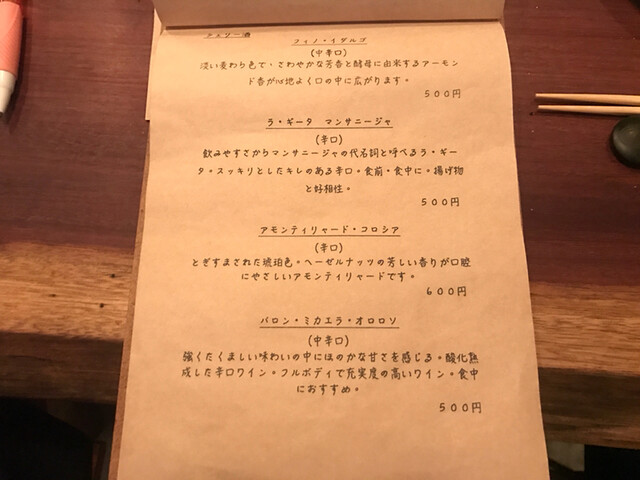 シェリー酒
フィノ・イダルゴ
(中辛口)
淡い麦わら色で、さわやかな芳香と酵母に由来するアーモン
ド香が心地よく口の中に広がります。
500円
ラ・ギータ マンサニージャ
(辛口)
飲みやすさからマンサニージャの代名詞と呼べるラ・ギー
タ。スッキリとしたキレのある辛口。食前・食中に。揚げ物
と好相性。
500円
アモンティリャード・コロシア
(辛口)
とぎすまされた琥珀色。ヘーゼルナッツの芳しい香りが口腔
にやさしいアモンティリャードです。
600円
バロン・ミカエラ・オロロソ
(中辛口)
強くたくましい味わいの中にほのかな甘さを感じる。酸化熟
成した辛口ワイン。フルボディで充実度の高いワイン。食中
におすすめ。
500円